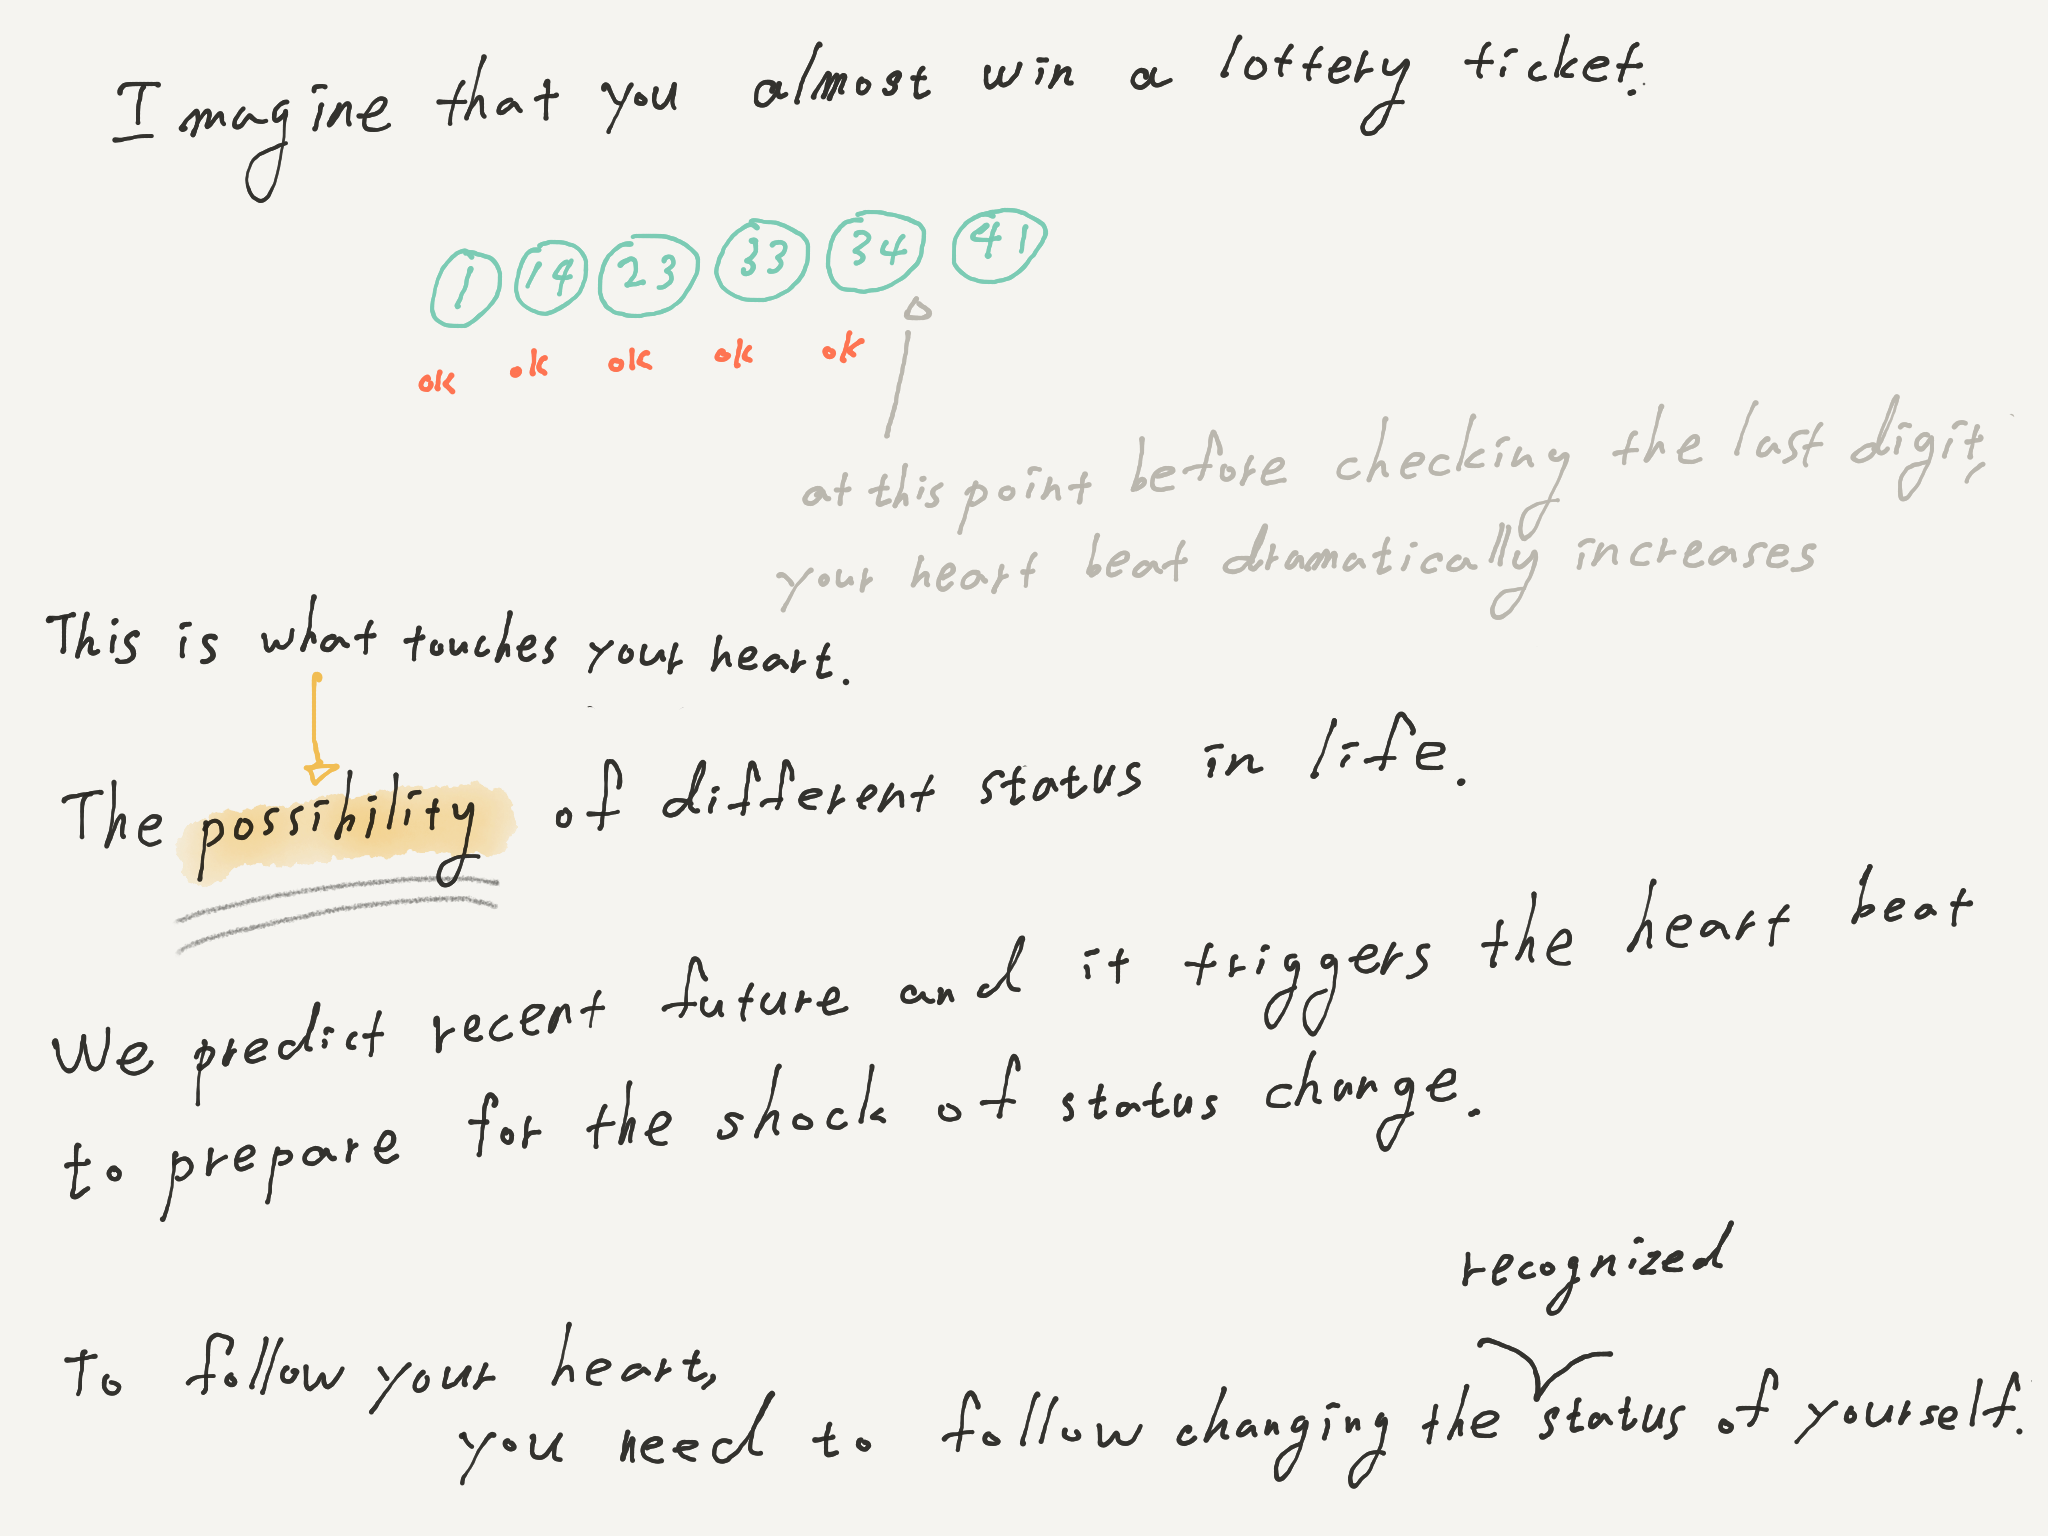 Imagine that you almost win a lottery ticket.
1 14 23 33 34 41
ok ok ok ok ok
at this point before checking the last digit,
your heart beat dramatically increases
This is what touches your heart.
The possibility of different status in life.
We predict recent future and it triggers the heart beat
to prepare for the shock of status change.
To follow your heart,
recognized
you need to follow changing the status of yourself.